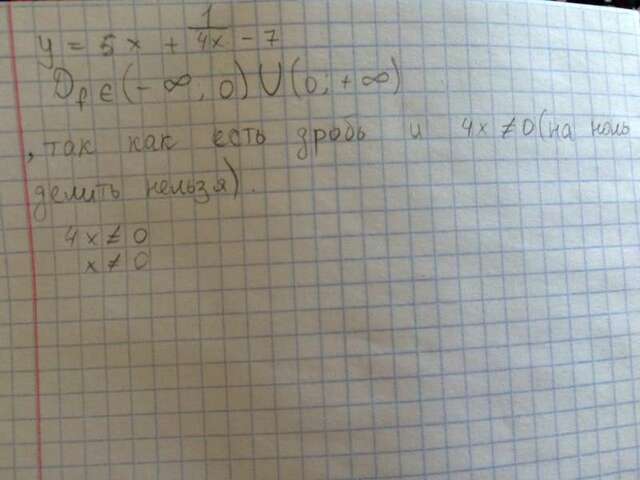 y = 5x + 1/4x - 7
Df ∈ (-∞; 0) U (0; +∞)
, так как есть дробь и 4x ≠ 0 (на ноль
делить нельзя).
4x ≠ 0
x ≠ 0